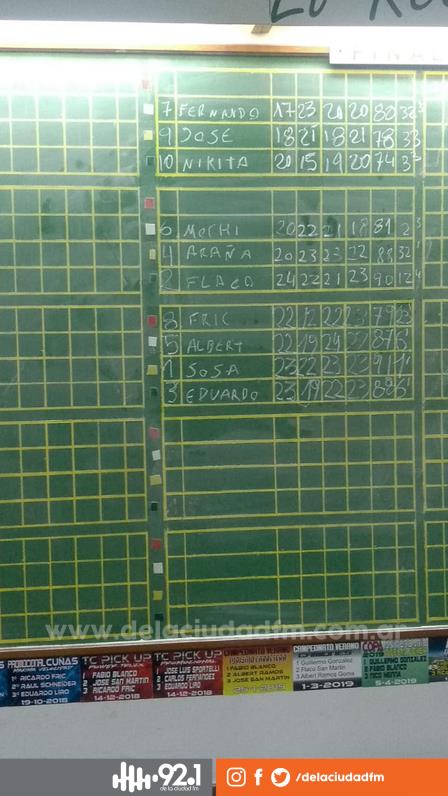 FINAL
7 FERNANDO 17 23 20 20 80
9 JOSE 18 21 18 21 78 33
10 NIKITA 20 15 19 20 74
6 MOCHI 20 22 21 18 81
4 ARAÑA 20 23 23 22 88
2 FLACO 24 22 21 23 90
8 FRIC 22 12 22 23 79
5 ALBERT 22 19 24
1 SOSA 23 22 23 23 91
3 EDUARDO 23 19 22
www.delaciudadfm.com.ar
PROMOCIONAL CUNAS
1º RICARDO FRIC
2º RAUL SCHNEIDER
3º EDUARDO LIRO
19-10-2018
TC PICK UP
1 FABIO BLANCO
2 JOSE SAN MARTIN
3 RICARDO FRIC
14-12-2018
TC PICK UP
1 JOSE LUIS SPORTELLI
2 CARLOS FERNANDEZ
3 EDUARDO LIRO
14-12-2018
CAMPEONATO VERANO
1 FABIO BLANCO
2 ALBERT RAMOS
3 JOSE SAN MARTIN
CAMPEONATO VERANO
1 Guillermo Gonzalez
2 Flaco San Martin
3 Albert Ramos
1-3-2019
COPA
2019
1 GUILLERMO GONZALEZ
2 FABIO BLANCO
5-4-2019
92.1
de la ciudad fm
/delaciudadfm